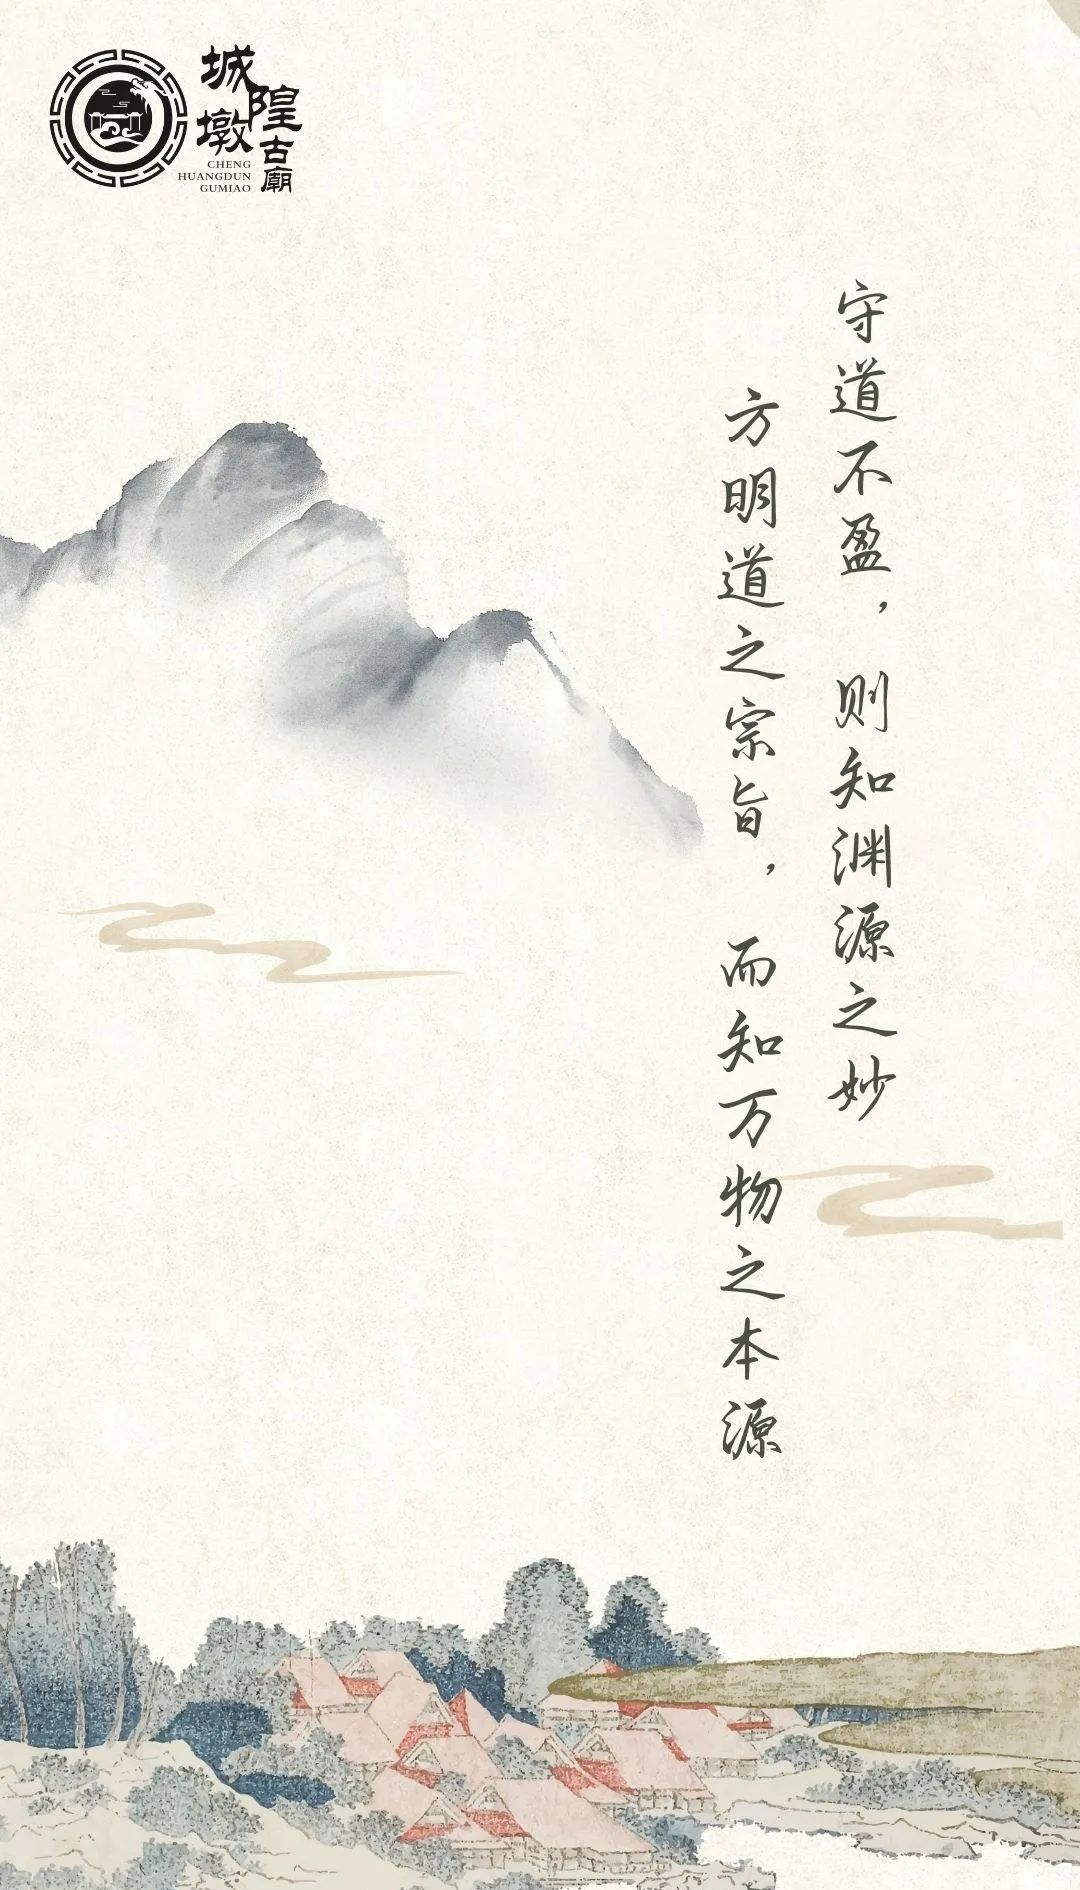 城隍墩古廟
CHENG
HUANGDUN
GUMIAO
守道不盈，则知渊源之妙
方明道之宗旨，而知万物之本源